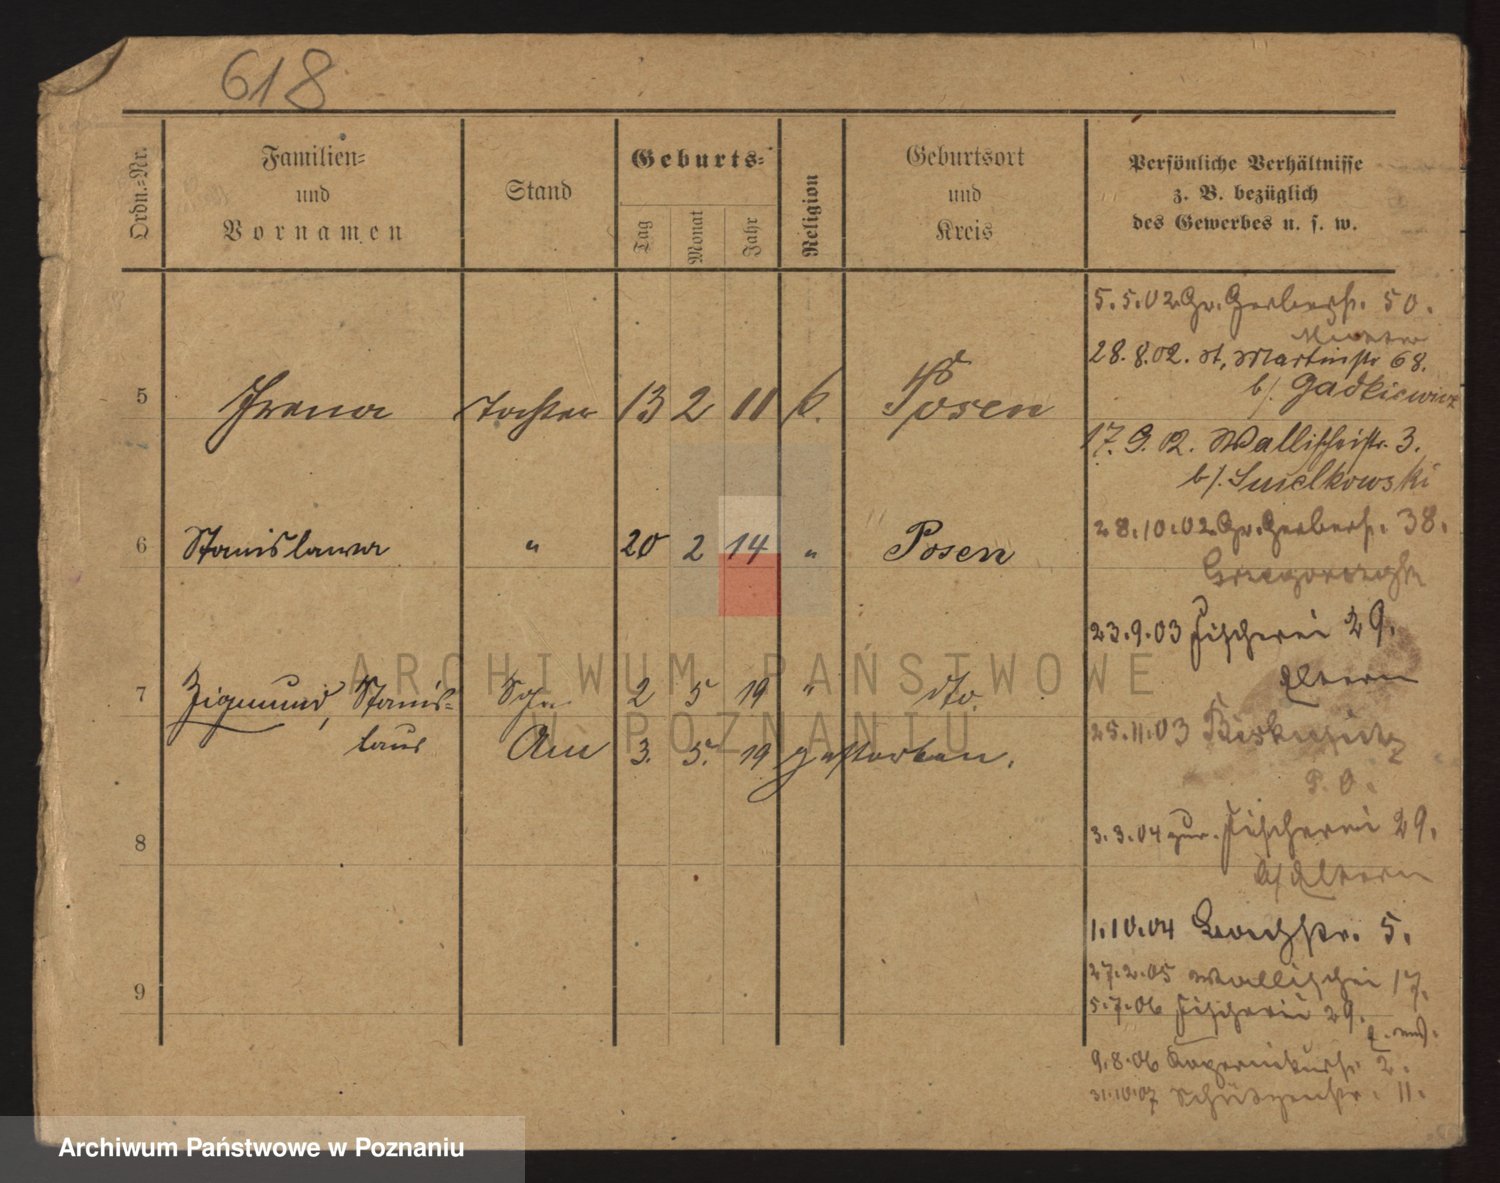 618
Ordn.=Nr.
Familien=
und
Vornamen
Stand
Geburts=
Tag
Monat
Jahr
Religion
Geburtsort
und
Kreis
Persönliche Verhältnisse
z. B. bezüglich
des Gewerbes u. s. w.
5 Irena Tochter 13 2 11 k. Posen
6 Stanislawa " 20 2 14 " Posen
7 Zigmund, Stanis= Sohn 2 5 19 " dto.
laus Am 3. 5. 19 gestorben.
8
9
5.5.02 Gr. Gerberstr. 50.
28.8.02. St. Martinstr 68.
b/. Gadkiewicz
17.9.02. Wallischeistr. 3.
b/. Smelkowski
28.10.02 Gr. Gerberstr. 38.
23.9.03 Fischerei 29.
Eltern
25.11.03
P. O.
3.3.04 zur. Fischerei 29.
b/ Eltern
1.10.04 5.
27.2.05 Wallischei 17.
5.7.06 Fischerei 29.
9.8.06 2.
31.10.07 Schützenstr. 11.
ARCHIWUM PAŃSTWOWE
W POZNANIU
Archiwum Państwowe w Poznaniu